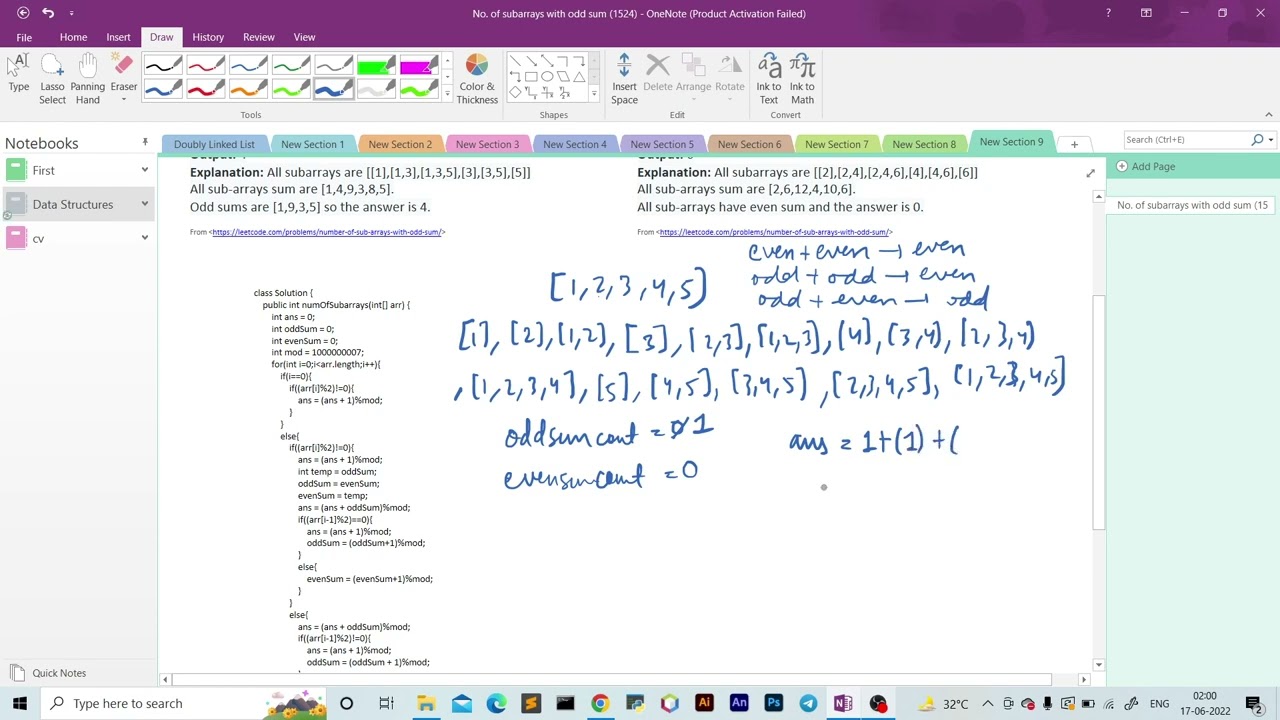 No. of subarrays with odd sum (1524) - OneNote (Product Activation Failed)
File Home Insert Draw History Review View
Type Lasso Select Panning Hand Eraser Color & Thickness Insert Space Delete Arrange Rotate Ink to Text Ink to Math
Tools Shapes Edit Convert
Notebooks
Doubly Linked List New Section 1 New Section 2 New Section 3 New Section 4 New Section 5 New Section 6 New Section 7 New Section 8 New Section 9
Search (Ctrl+E)
First
Data Structures
cv
Quick Notes
Add Page
No. of subarrays with odd sum (15
Explanation: All subarrays are [[1],[1,3],[1,3,5],[3],[3,5],[5]]
All sub-arrays sum are [1,4,9,3,8,5].
Odd sums are [1,9,3,5] so the answer is 4.
From <https://leetcode.com/problems/number-of-sub-arrays-with-odd-sum/>
Explanation: All subarrays are [[2],[2,4],[2,4,6],[4],[4,6],[6]]
All sub-arrays sum are [2,6,12,4,10,6].
All sub-arrays have even sum and the answer is 0.
From <https://leetcode.com/problems/number-of-sub-arrays-with-odd-sum/>
even + even → even
odd + odd → even
odd + even → odd
[1,2,3,4,5]
[1], [2], [1,2], [3], [2,3], [1,2,3], [4], [3,4], [2,3,4]
, [1,2,3,4], [5], [4,5], [3,4,5], [2,3,4,5], [1,2,3,4,5]
oddsumcont = 0 1
evensumcount = 0
ans = 1+(1)+(
class Solution {
public int numOfSubarrays(int[] arr) {
int ans = 0;
int oddSum = 0;
int evenSum = 0;
int mod = 1000000007;
for(int i=0;i<arr.length;i++){
if(i==0){
if((arr[i]%2)!=0){
ans = (ans + 1)%mod;
}
}
else{
if((arr[i]%2)!=0){
ans = (ans + 1)%mod;
int temp = oddSum;
oddSum = evenSum;
evenSum = temp;
ans = (ans + oddSum)%mod;
if((arr[i-1]%2)==0){
ans = (ans + 1)%mod;
oddSum = (oddSum+1)%mod;
}
else{
evenSum = (evenSum+1)%mod;
}
}
else{
ans = (ans + oddSum)%mod;
if((arr[i-1]%2)!=0){
ans = (ans + 1)%mod;
oddSum = (oddSum + 1)%mod;
Type here to search
32°C
ENG
02:00
17-06-2022